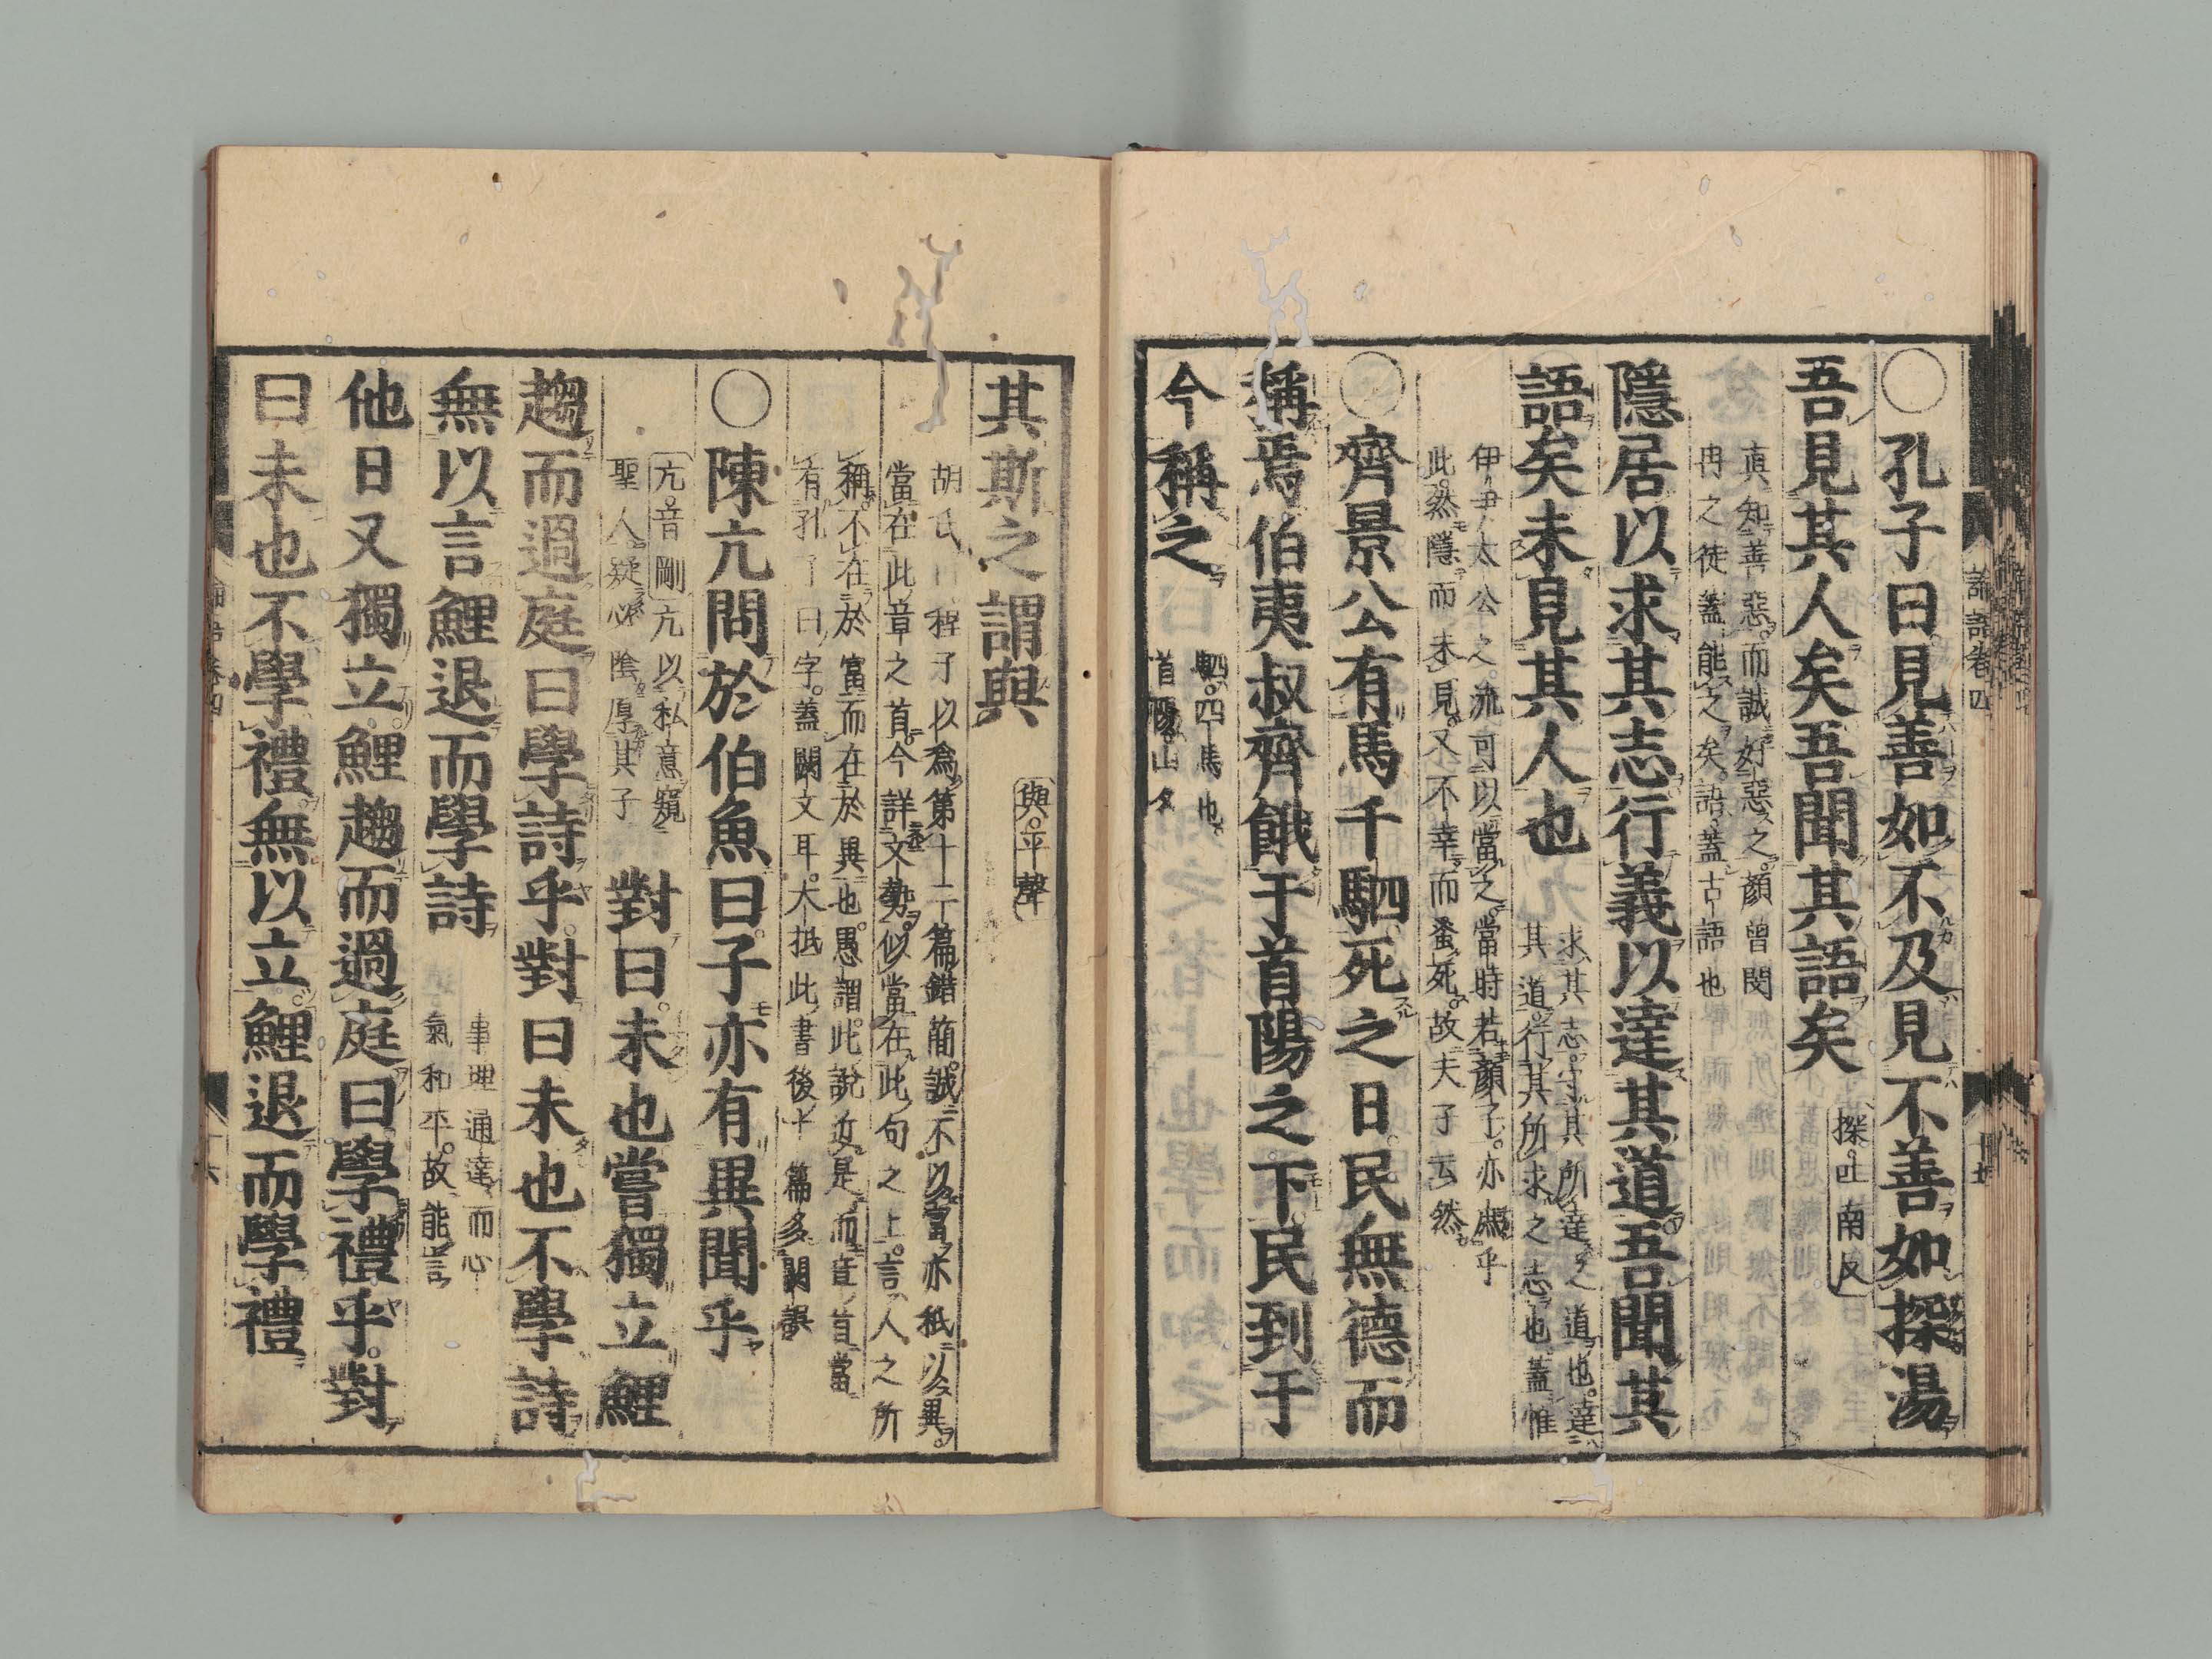 論語卷四
〇孔子曰見善如不及見不善如探湯
吾見其人矣吾聞其語矣
探。吐南反
眞知善惡。而誠好惡之。顏曾閔
冉之徒。蓋能之矣。語。蓋古語也
隱居以求其志行義以達其道吾聞其
語矣未見其人也
求其志。守其所達之道也。達
其道。行其所求之志也。蓋惟
伊尹太公之流。可以當之。當時若顏子。亦庶乎
此。然隱而未見。又不幸而蚤死。故夫子云然。
〇齊景公有馬千駟死之日民無德而
稱焉伯夷叔齊餓于首陽之下民到于
今稱之
駟。四馬也。
首陽山名
其斯之謂與
與。平聲
胡氏曰程子以爲第十二篇錯簡。誠不以富。亦祇以異。
當在此章之首。今詳文勢。似當在此句之上。言人之所
稱。不在於富。而在於異也。愚謂。此說近是。而章首當
有孔子曰字。蓋闕文耳。大抵此書後十篇多闕誤
〇陳亢問於伯魚曰子亦有異聞乎
亢。音剛 亢以私意窺
聖人。疑必陰厚其子
對曰未也嘗獨立鯉
趨而過庭曰學詩乎對曰未也不學詩
無以言鯉退而學詩
事理通達而心
氣和平。故能言
他日又獨立鯉趨而過庭曰學禮乎對
曰未也不學禮無以立鯉退而學禮
十六